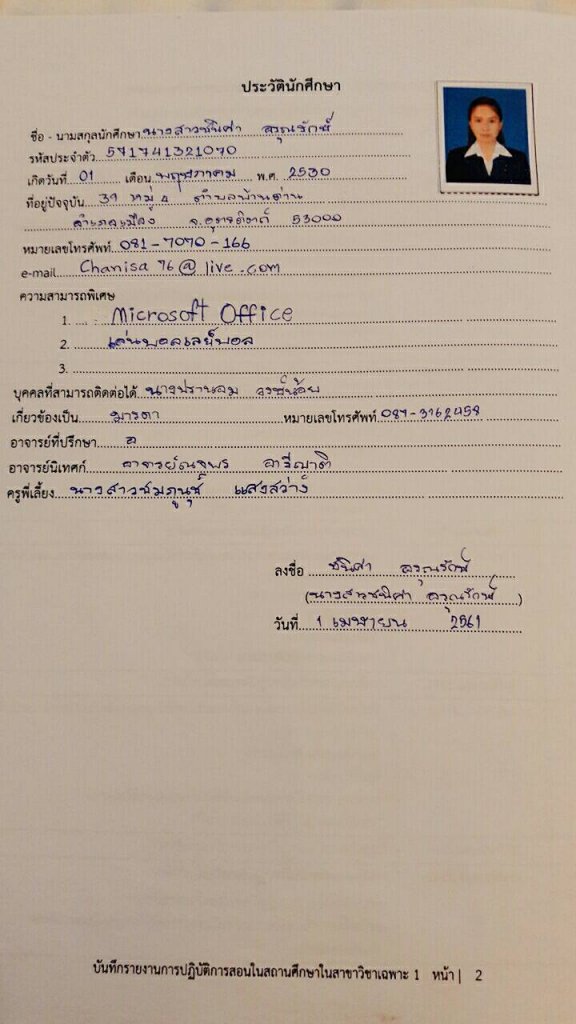 ประวัตินักศึกษา
ชื่อ - นามสกุลนักศึกษา นางสาวชนิศา อรุณรักษ์
รหัสประจำตัว 571741321070
เกิดวันที่ 01 เดือน พฤษภาคม พ.ศ. 2530
ที่อยู่ปัจจุบัน 39 หมู่ 4 ตำบลบ้านด่าน
อำเภอเมือง จ.อุตรดิตถ์ 53000
หมายเลขโทรศัพท์ 081-7070-166
e-mail Chanisa76@live.com
ความสามารถพิเศษ
1. Microsoft Office
2. เล่นบอลเลย์บอล
3.
บุคคลที่สามารถติดต่อได้ นางปรานอม
เกี่ยวข้องเป็น มารดา หมายเลขโทรศัพท์ 087-3162458
อาจารย์ที่ปรึกษา
อาจารย์นิเทศก์ อารีญาติ
ครูพี่เลี้ยง นางสาวชมภูนุช แสงสว่าง
ลงชื่อ ชนิศา อรุณรักษ์
(นางสาวชนิศา อรุณรักษ์)
วันที่ 1 เมษายน 2561
บันทึกรายงานการปฏิบัติการสอนในสถานศึกษาในสาขาวิชาเฉพาะ 1 หน้า | 2